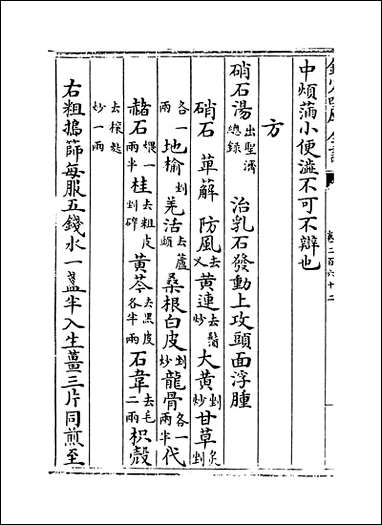 卷二百六十二
中煩滿小便澁不可不辯也
方
硝石湯出聖濟總錄 治乳石發動上攻頭面浮腫
硝石 萆解 防風去叉黃連去鬚炒大黃剉炒甘草炙剉
各一兩地榆剉羗活去蘆頭桑根白皮剉炒龍骨各一兩半代
赭石煨一兩半桂去粗皮剉碎黃芩去黑皮各半兩石韋去毛二兩枳殼
去穰麩炒一兩
右粗搗篩每服五錢水一盞半入生薑三片同煎至